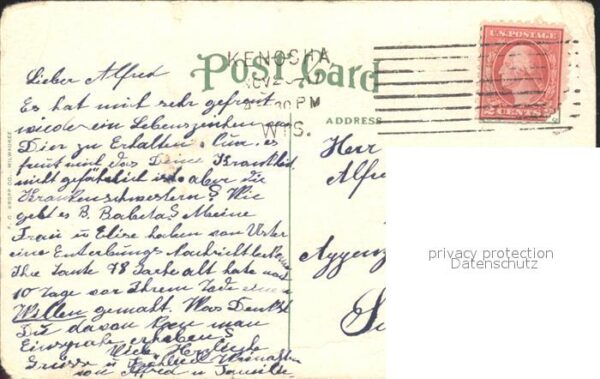 KENOSHA,
WIS.
POST CARD
U.S. POSTAGE
2 CENTS 2
ADDRESS
E. C. KROPP CO., MILWAUKEE
Lieber Alfred
Es hat mich sehr gefreut
wieder ein Lebenszeichen von
Dier zu Erhalten. Nun es
freut mich das Deine Krankheit
nicht gefährlich ist aber die
Krankenschwestern? Wie
geht es B. Babeta? Meine
Frau u Elise haben von Uster
eine Enterbungs Nachricht
Ihre Tante 78 Jahre alt hate noch
10 Tage vor Ihrem Tode einen
Willen gemacht. Was Denkst
Du davon kan man
Einsprache erheben?
Viele Herzliche
Grüsse u Fröhliche Weinachten
von Alfred u Familie
Herr
Alfre
Appenz
privacy protection
Datenschutz